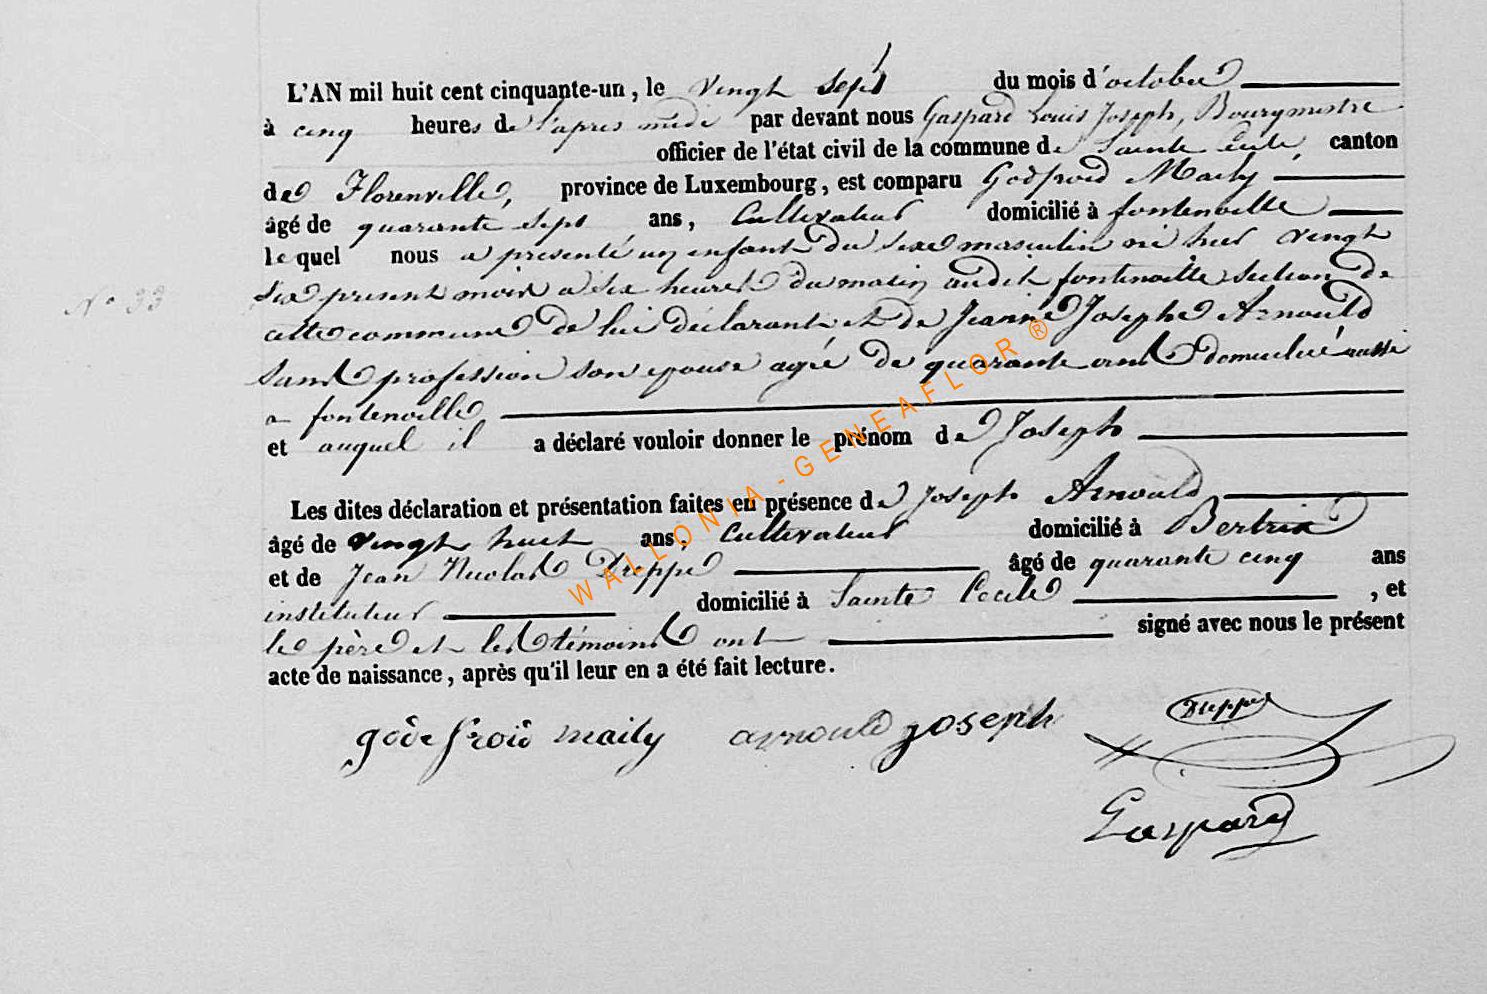 L'AN mil huit cent cinquante-un, le vingt sept du mois d'octobre
à cinq heures de l'après midi par devant nous Gaspard Louis Joseph, Bourgmestre
officier de l'état civil de la commune de Sainte Cécile, canton
de Florenville, province de Luxembourg, est comparu Godfroid Maily
âgé de quarante sept ans, Cultivateur domicilié à fontenoille
le quel nous a présenté un enfant du sexe masculin né hier vingt
N° 33
six présent mois a six heures du matin audit fontenoille section de
cette commune de lui déclarant et de Jeanne Josephe Arnould
sans profession son epouse agée de quarante ans domiciliée aussi
a fontenoille
et auquel il a déclaré vouloir donner le prénom de Joseph
Les dites déclaration et présentation faites en présence de Joseph Arnould
âgé de vingt huit ans, Cultivateur domicilié à Bertrix
et de Jean Nicolas Dreppe âgé de quarante cinq ans
instituteur domicilié à Sainte Cecile, et
le père et les témoins ont signé avec nous le présent
acte de naissance, après qu'il leur en a été fait lecture.
godefroid maily arnould joseph Dreppe
Gaspard
WALLONIA-GENEAFLOR®